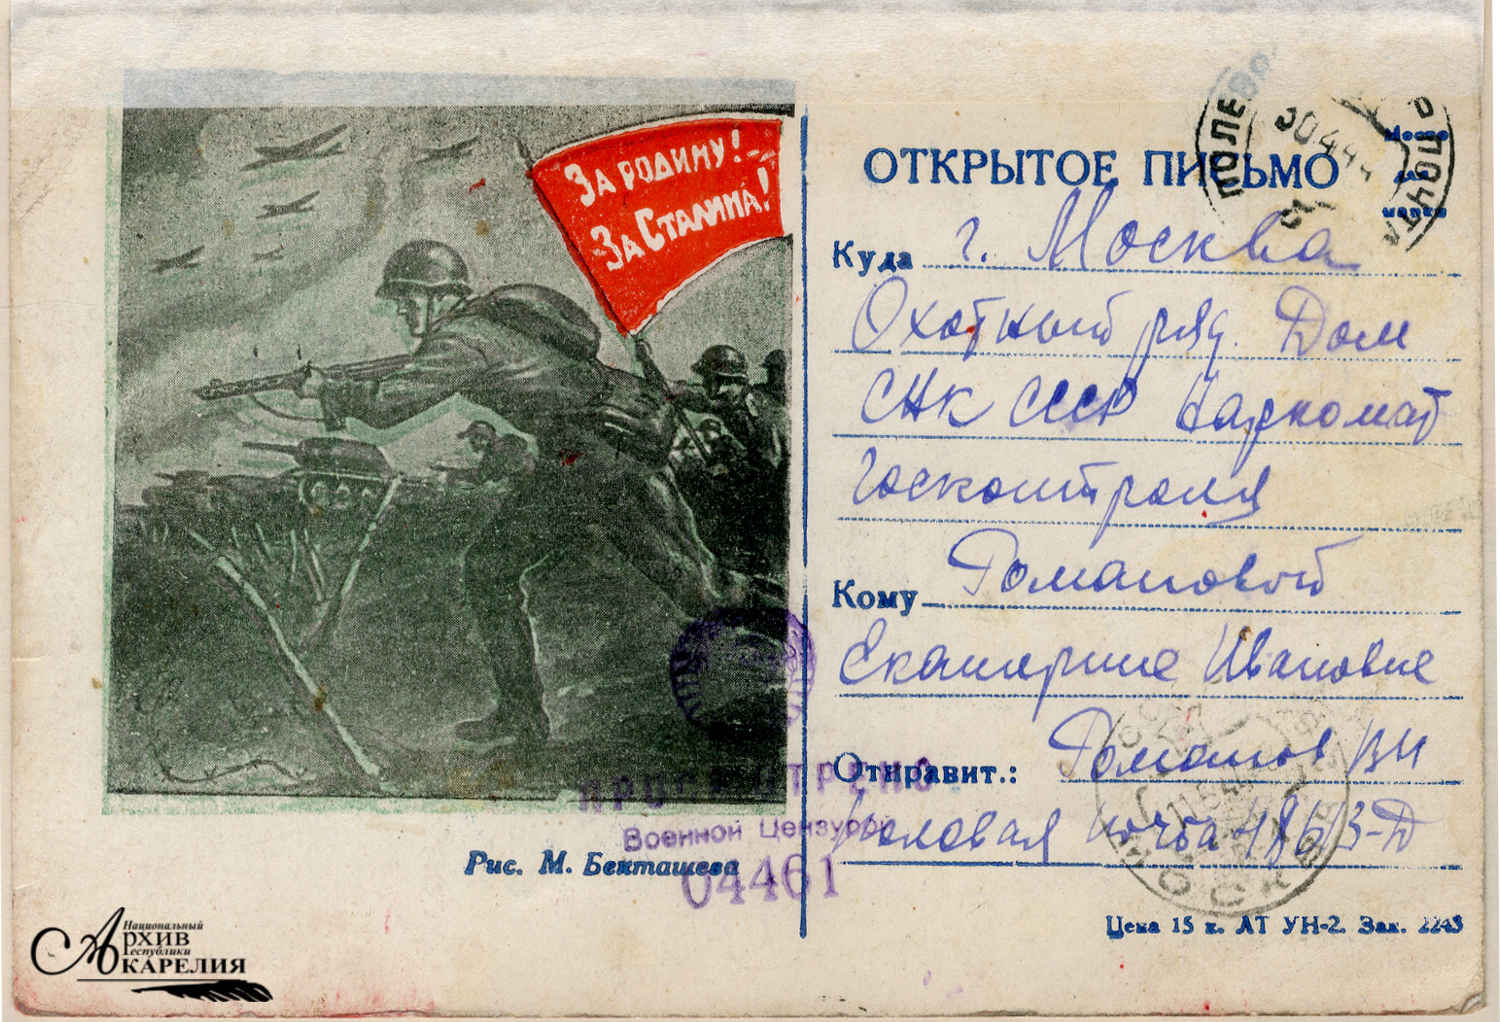 За родину!
За Сталина!
ОТКРЫТОЕ ПИСЬМО
Место
для
марки
ПОЛЕ ПОЧТА
30 4 44
Куда г. Москва
Охотный ряд. Дом
СНК СССР Наркомат
Госконтроля
Кому Романовой
Екатерине Ивановне
Отправит.: Романов ВИ
Полевая почта 48613-Д
ПРОСМОТРЕНО
Военной Цензурой
04461
МОСКВА
11 5 44
Рис. М. Бекташева
Цена 15 к. АТ УН-2. Зак. 2243
Национальный
Архив
Республики
Карелия